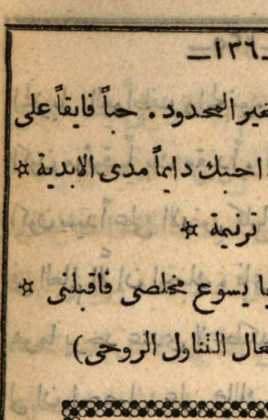 ـ١٣٦ـ
غير المحدود . حباً فايقاً على
احبك دايماً مدى الابدية ✲
ترنيمة ✲
يا يسوع مخلصى فاقبلنى ✲
التناول الروحى)